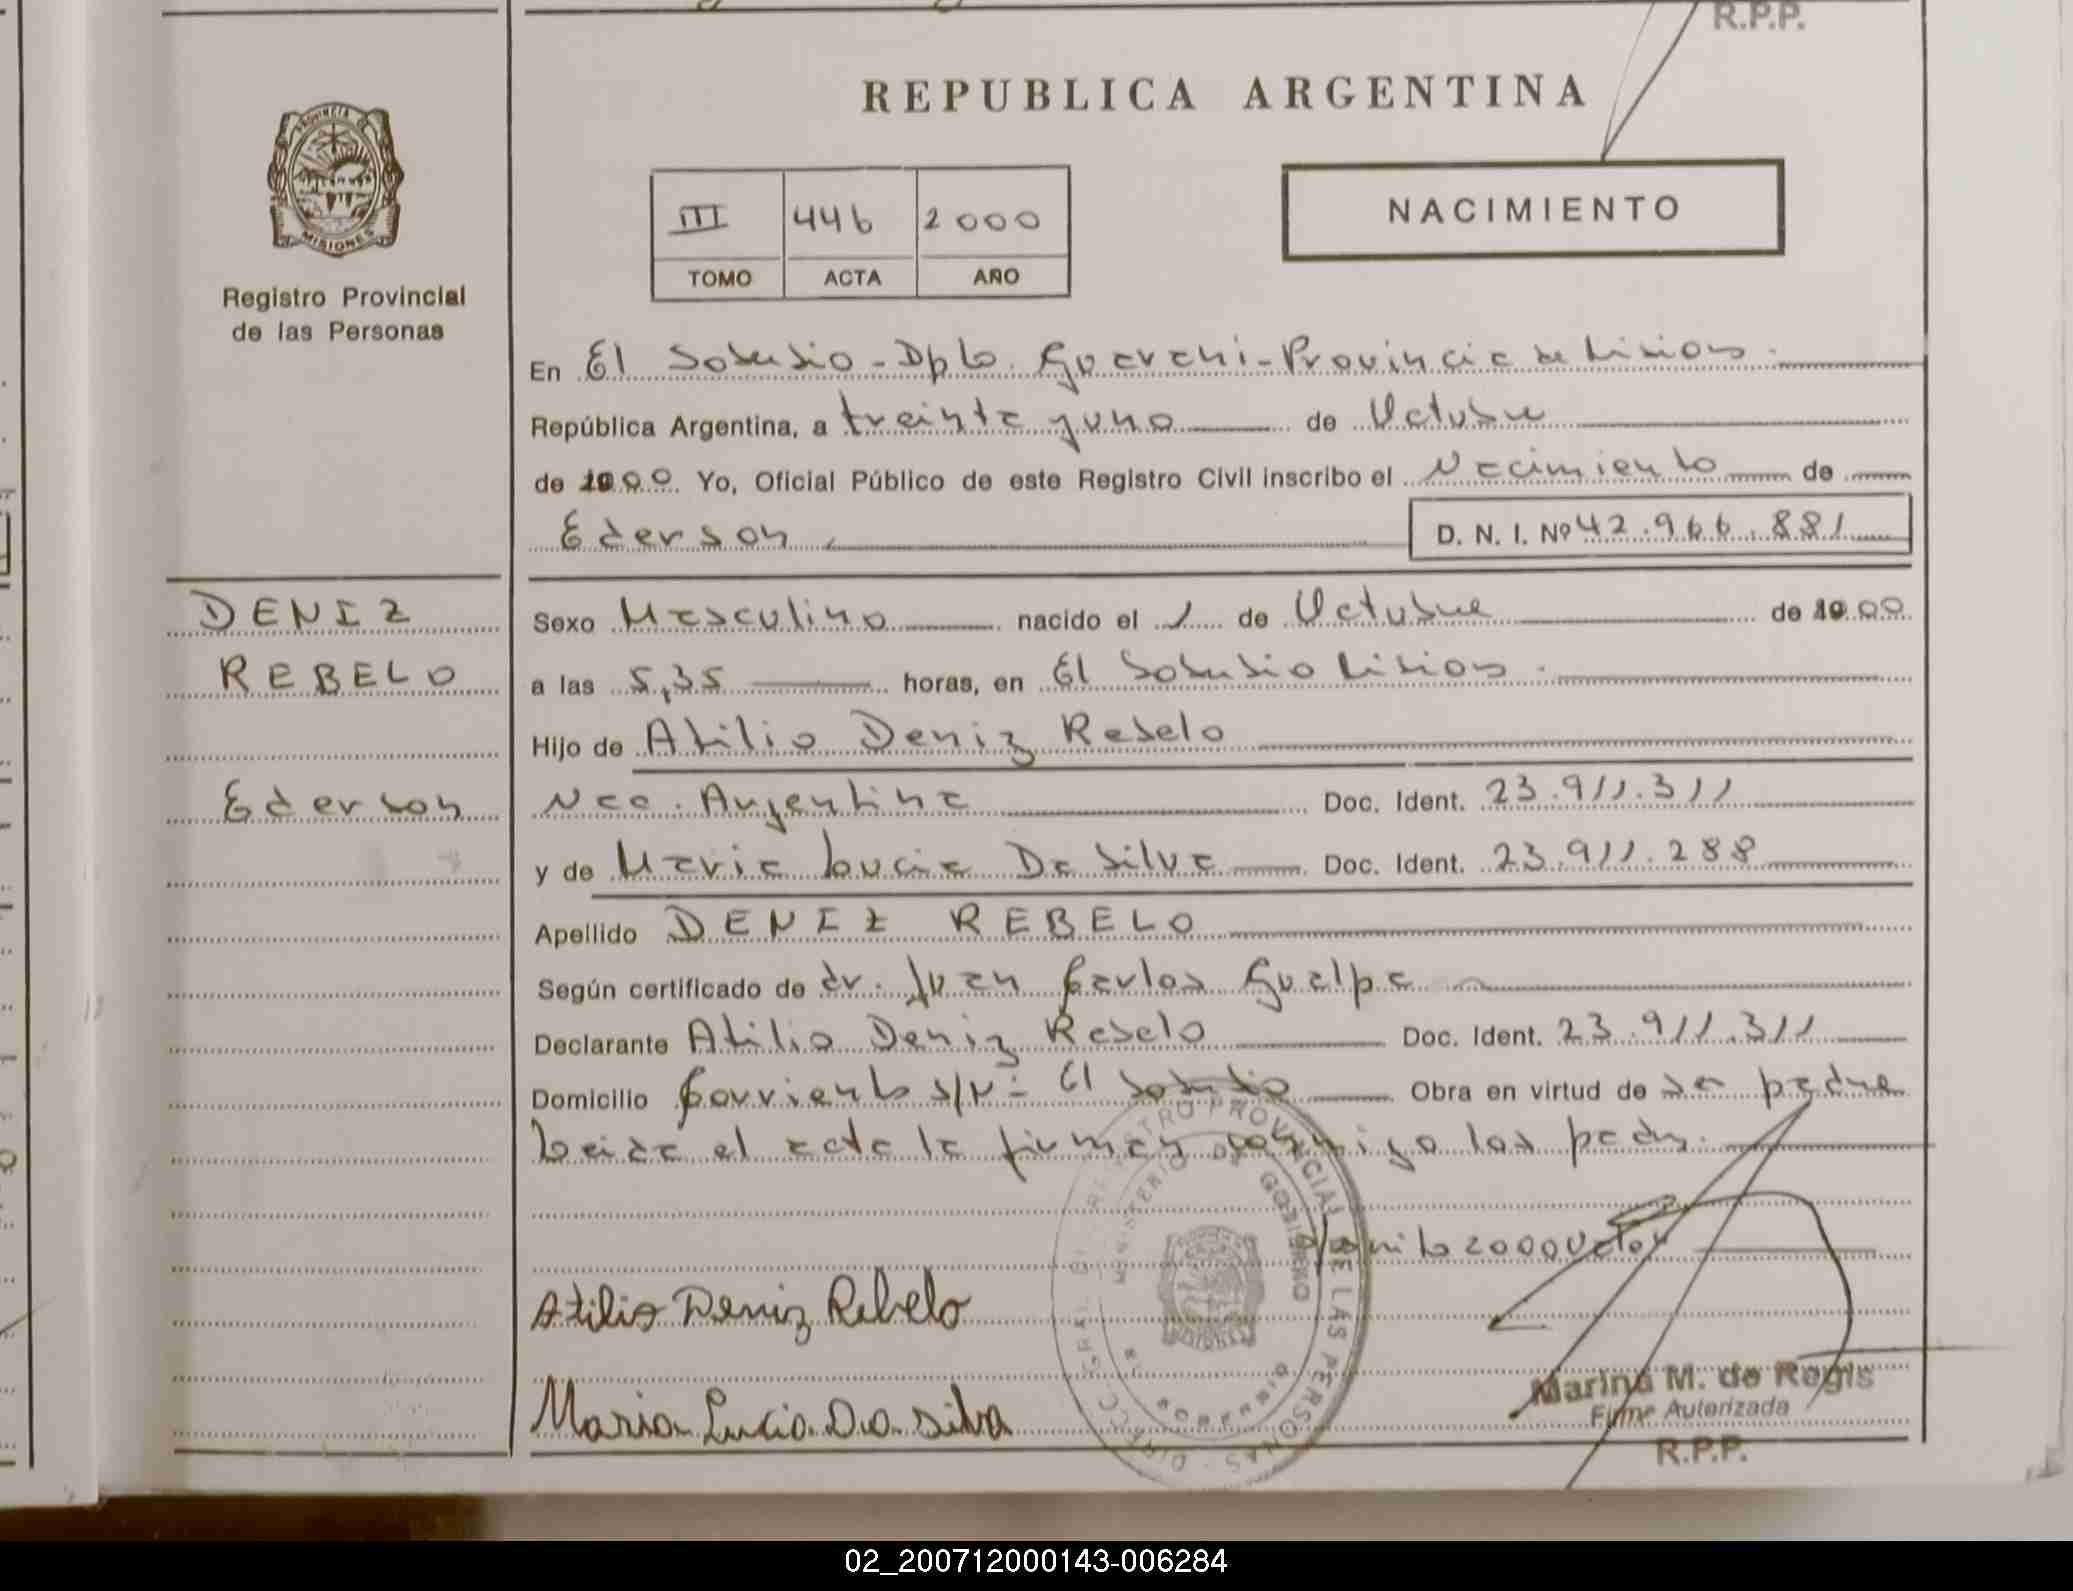 R.P.P.
REPUBLICA ARGENTINA
PROVINCIA DE
MISIONES
Registro Provincial
de las Personas
III 446 2000
TOMO ACTA AÑO
NACIMIENTO
En El Soberbio - Dpto. Guarani - Provincia de Misiones.
República Argentina, a treinta y uno de Octubre
de 2000 Yo, Oficial Público de este Registro Civil inscribo el Nacimiento de
Ederson D. N. I. Nº 42.966.881
DENIZ
REBELO
Ederson
Sexo Masculino nacido el 1 de Octubre de 2000
a las 5,35 horas, en El Soberbio Misiones.
Hijo de Atilio Deniz Rebelo
Nac. Argentina Doc. Ident. 23.911.311
y de Maria Lucia Da Silva Doc. Ident. 23.911.288
Apellido DENIZ REBELO
Según certificado de dr. Juan Carlos Gualpa
Declarante Atilio Deniz Rebelo Doc. Ident. 23.911.311
Domicilio s/n - El Soberbio Obra en virtud de ser padre
Leida el acta la firman conmigo los padres.
2000
REGISTRO PROVINCIAL DE LAS PERSONAS
MINISTERIO DE GOBIERNO
EL SOBERBIO
Atilio Deniz Rebelo
Maria Lucia Da Silva
Marina M. de Regis
Firma Autorizada
R.P.P.
02_200712000143-006284